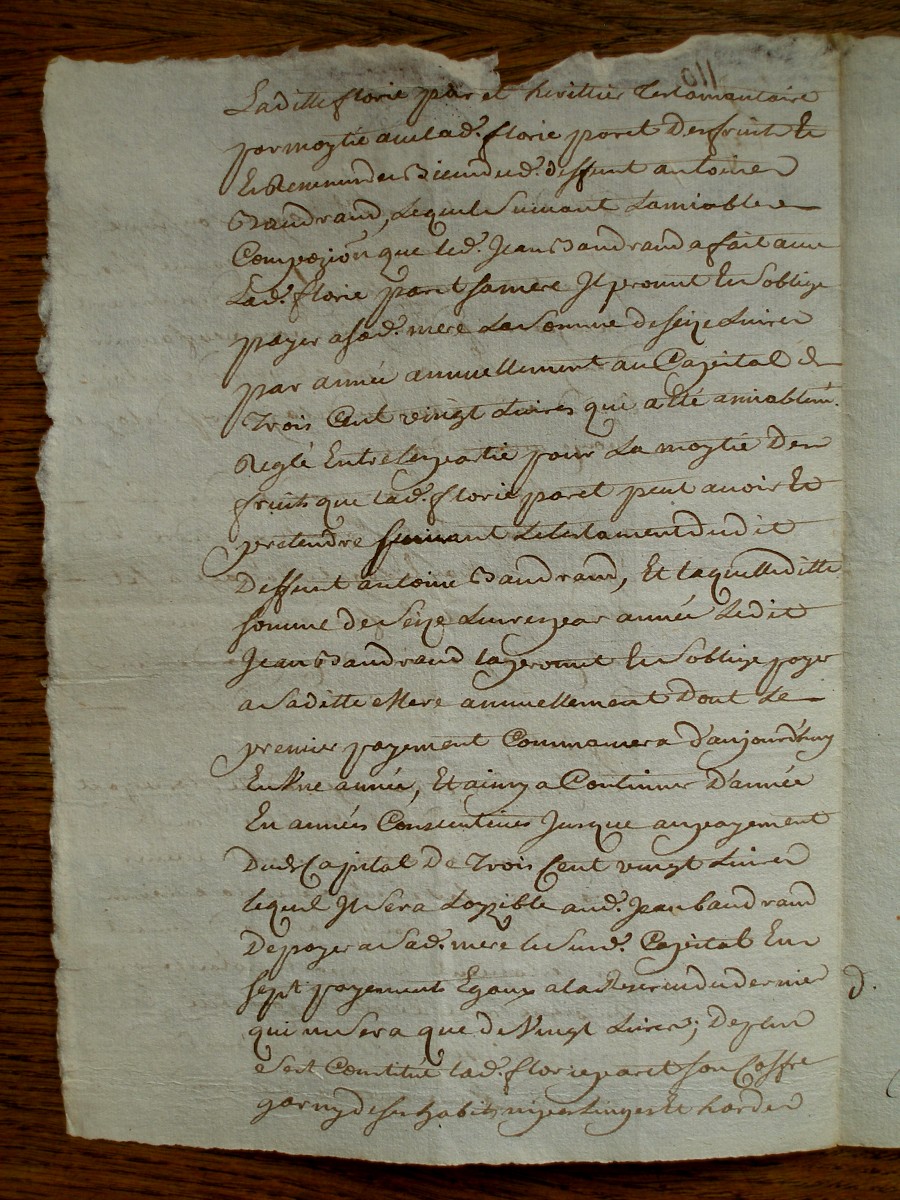 110
Laditte florie paret heritier Testamantaire
par moytie avec lad.e florie paret des fruits Et
Et Revenus des Biens dud. deffunt antoine
Baudrand, Lequel Suivant Lamiable
Compozion que led. Jean Baudrand a fait avec
Lad.e florie paret sa mere Il promet Et S'oblige
payer a sad.e mere La Somme de Seize Livres
par année annuellement au Capital de
Trois Cent vingt Livres que a Eté amiablem.
Reglé Entre les partie pour La moytie Des
fruits que lad.e florie paret peut avoir Et
pretendre Suivant Le testament dudit
Deffunt antoine Baudrand, Et laquelle ditte
Somme de Seize Livres par année Ledit
Jean Baudrand la promet Et S'oblige payer
a Saditte Mere annuellement Dont Le
premier payement Commancera d'aujourd'huy
En Une année, Et ainsy a Continuer D'année
En années Consecutives Jusque au payement
Dud. Capital De Trois Cent vingt Livres
lequel Il Sera Loizible aud. Jean baudrand
De payer a Sad.e mere le Surd. Capital En
sept payements Egaux a la Reserve du dernier
qui ne Sera que de Vingt Livres; De plus
s'est Constitué lad.e florie paret son Coffre
garny de ses habits nipes Linges Et hardes
d.